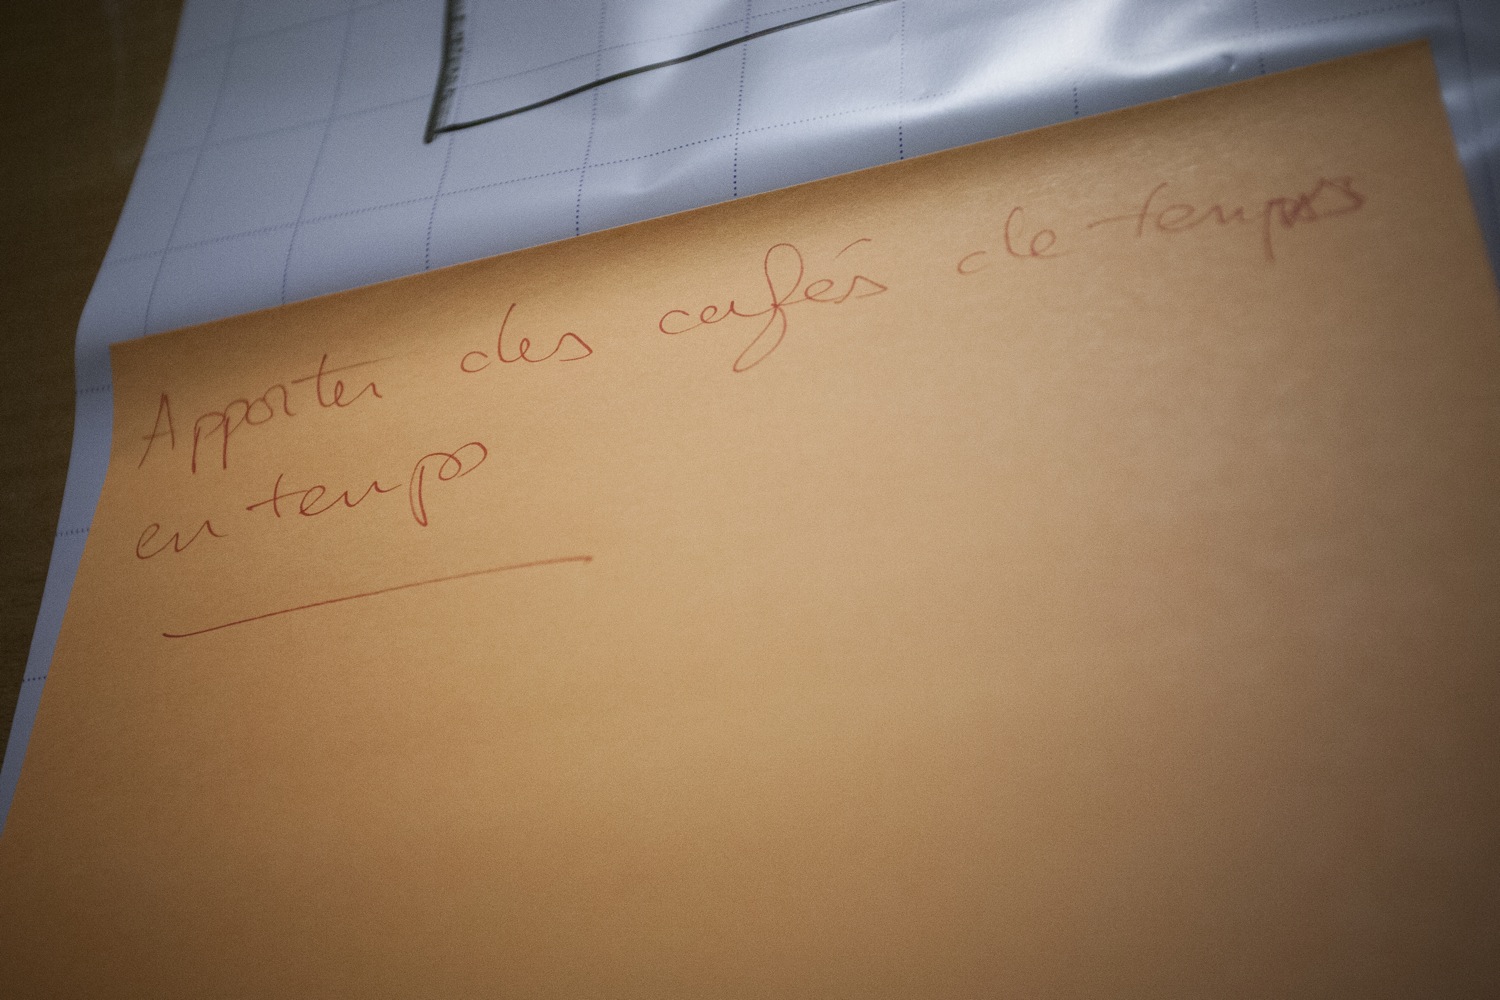 Apporter des cafés de temps
en temps